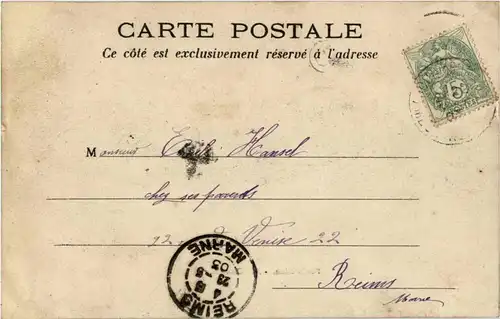 CARTE POSTALE
Ce côté est exclusivement réservé à l'adresse
Monsieur Emile Hansel
chez ses parents
22 de Venise 22
Reims
Marne
REIMS
MARNE